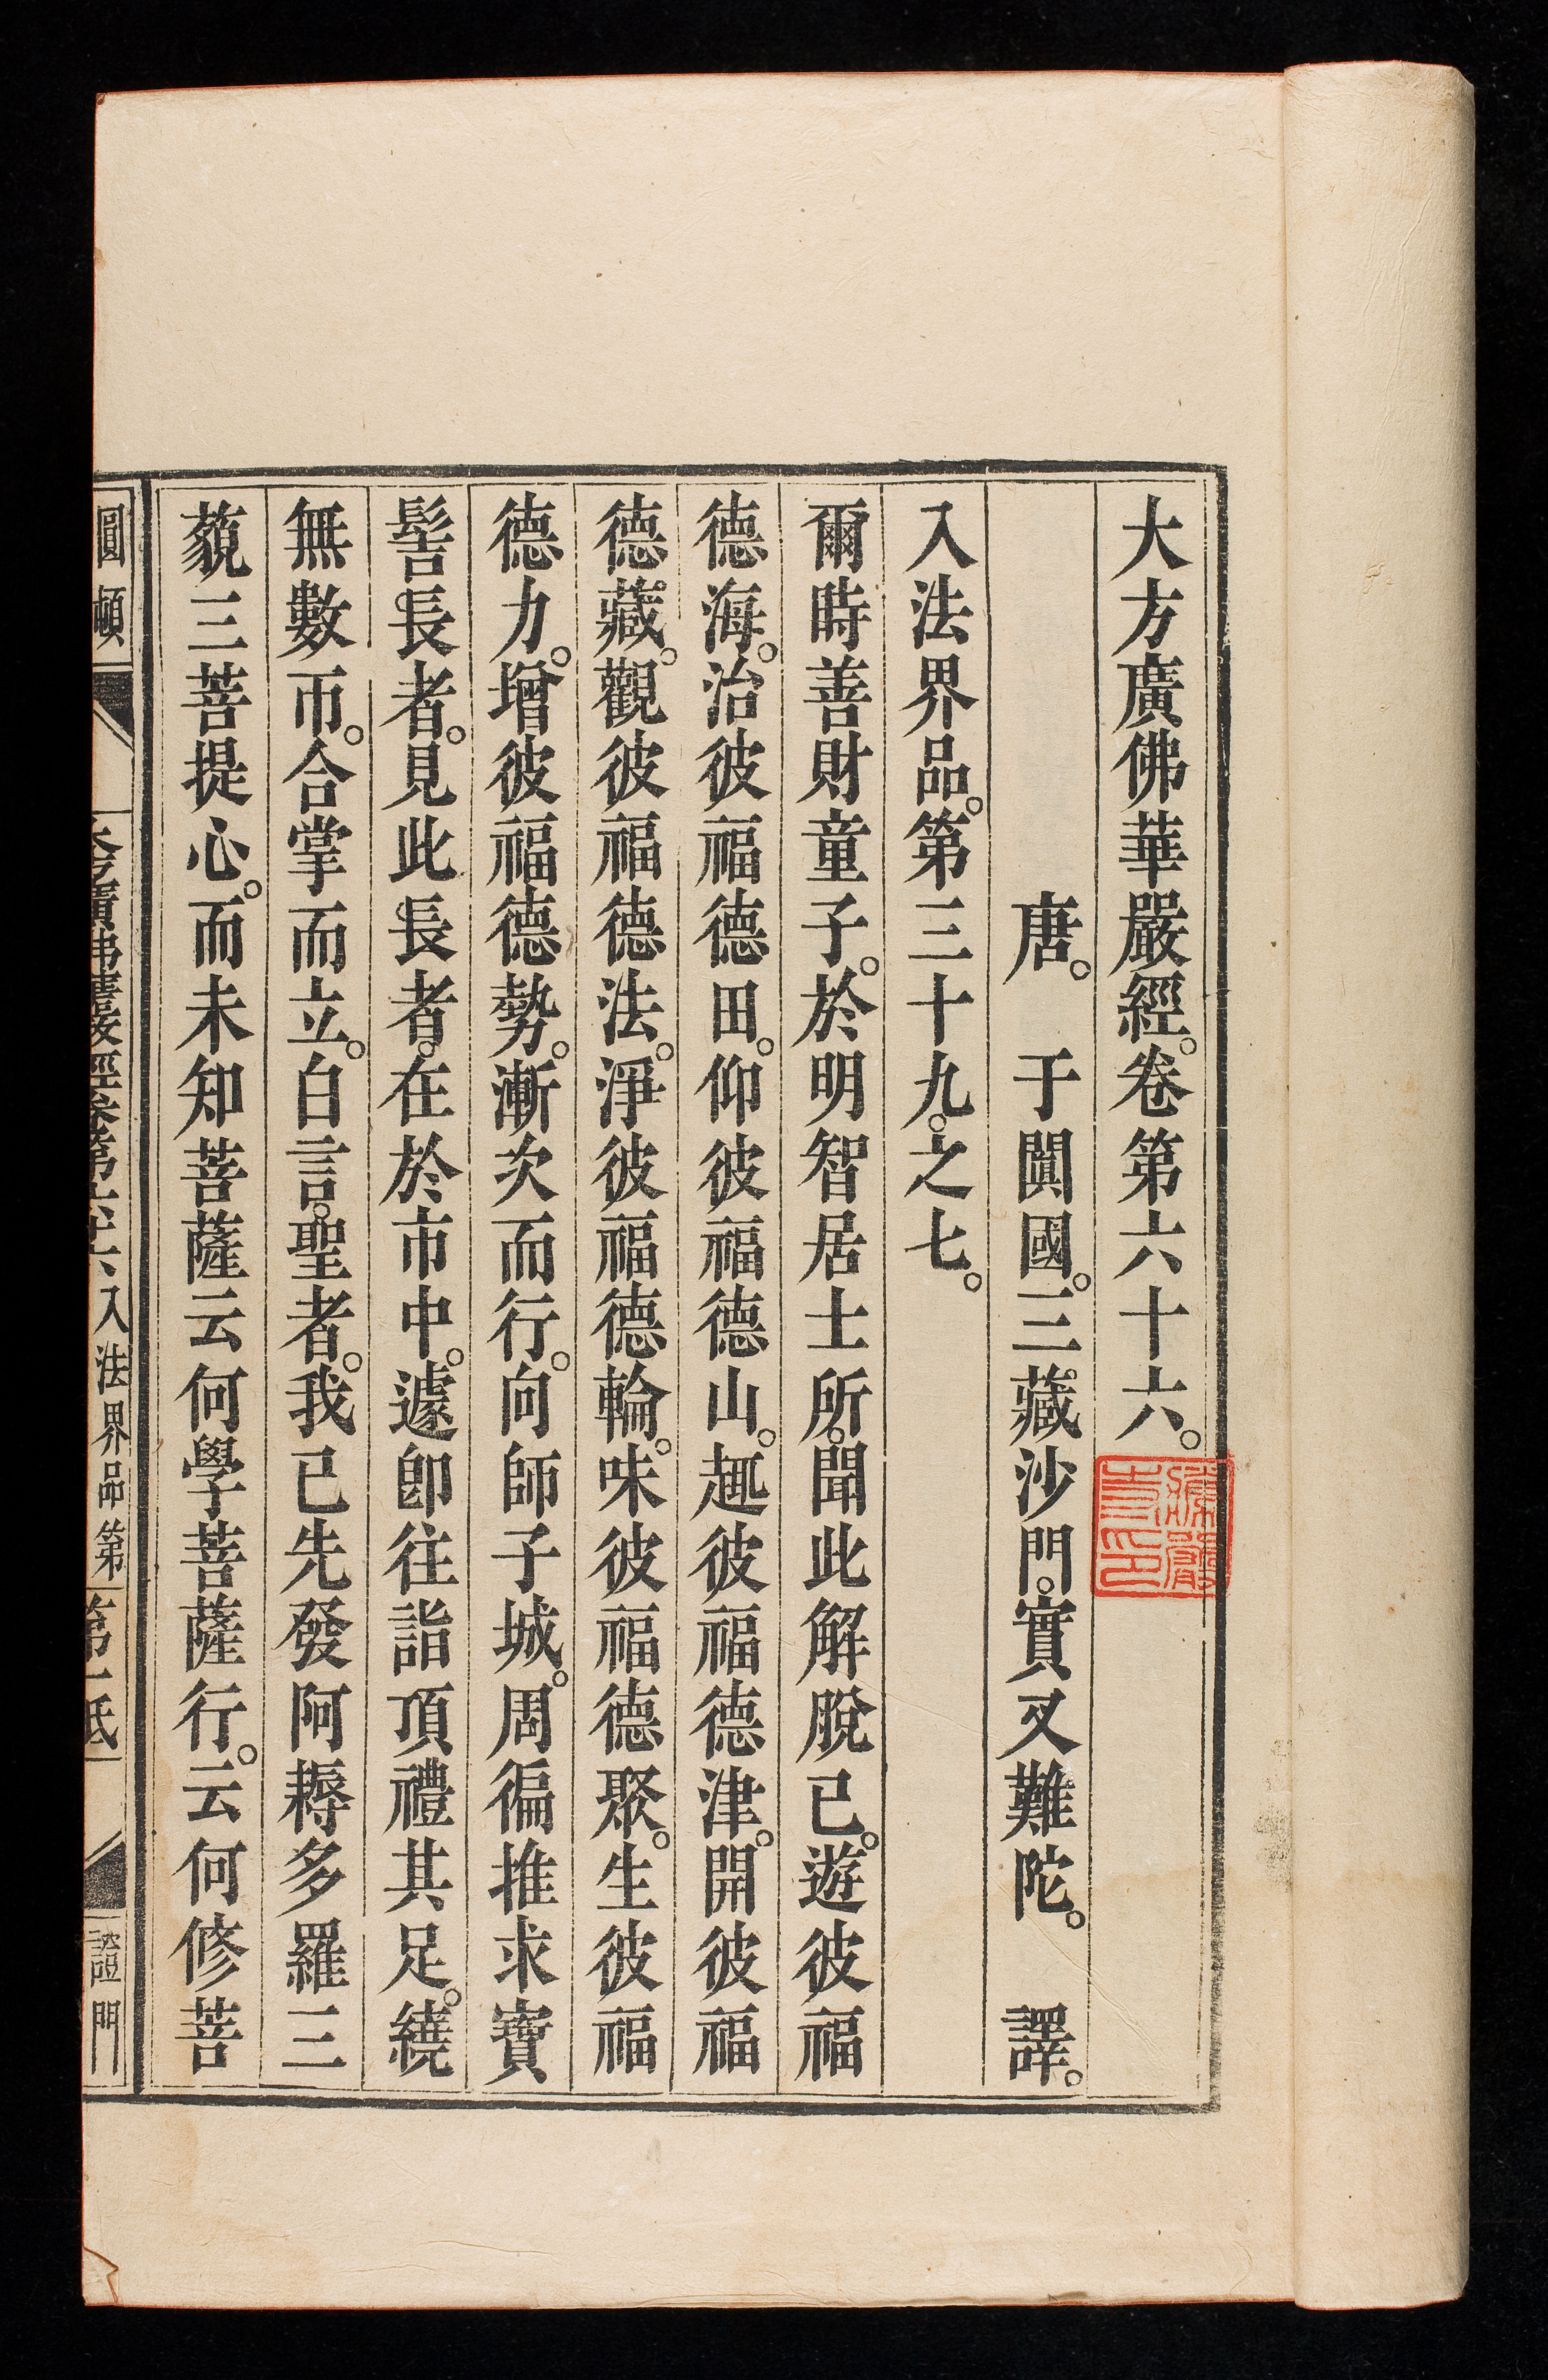 大方廣佛華嚴經。卷第六十六。
唐。于闐國。三藏沙門。實叉難陀。譯。
入法界品。第三十九。之七。
爾時善財童子。於明智居士所。聞此解脫已。遊彼福
德海。治彼福德田。仰彼福德山。趣彼福德津。開彼福
德藏。觀彼福德法。淨彼福德輪。味彼福德聚。生彼福
德力。增彼福德勢。漸次而行。向師子城。周徧推求寶
髻長者。見此長者。在於市中。遽卽往詣頂禮其足。繞
無數帀。合掌而立。白言。聖者。我已先發阿耨多羅三
藐三菩提心。而未知菩薩云何學菩薩行。云何修菩
圓頓
入法界品第
證門